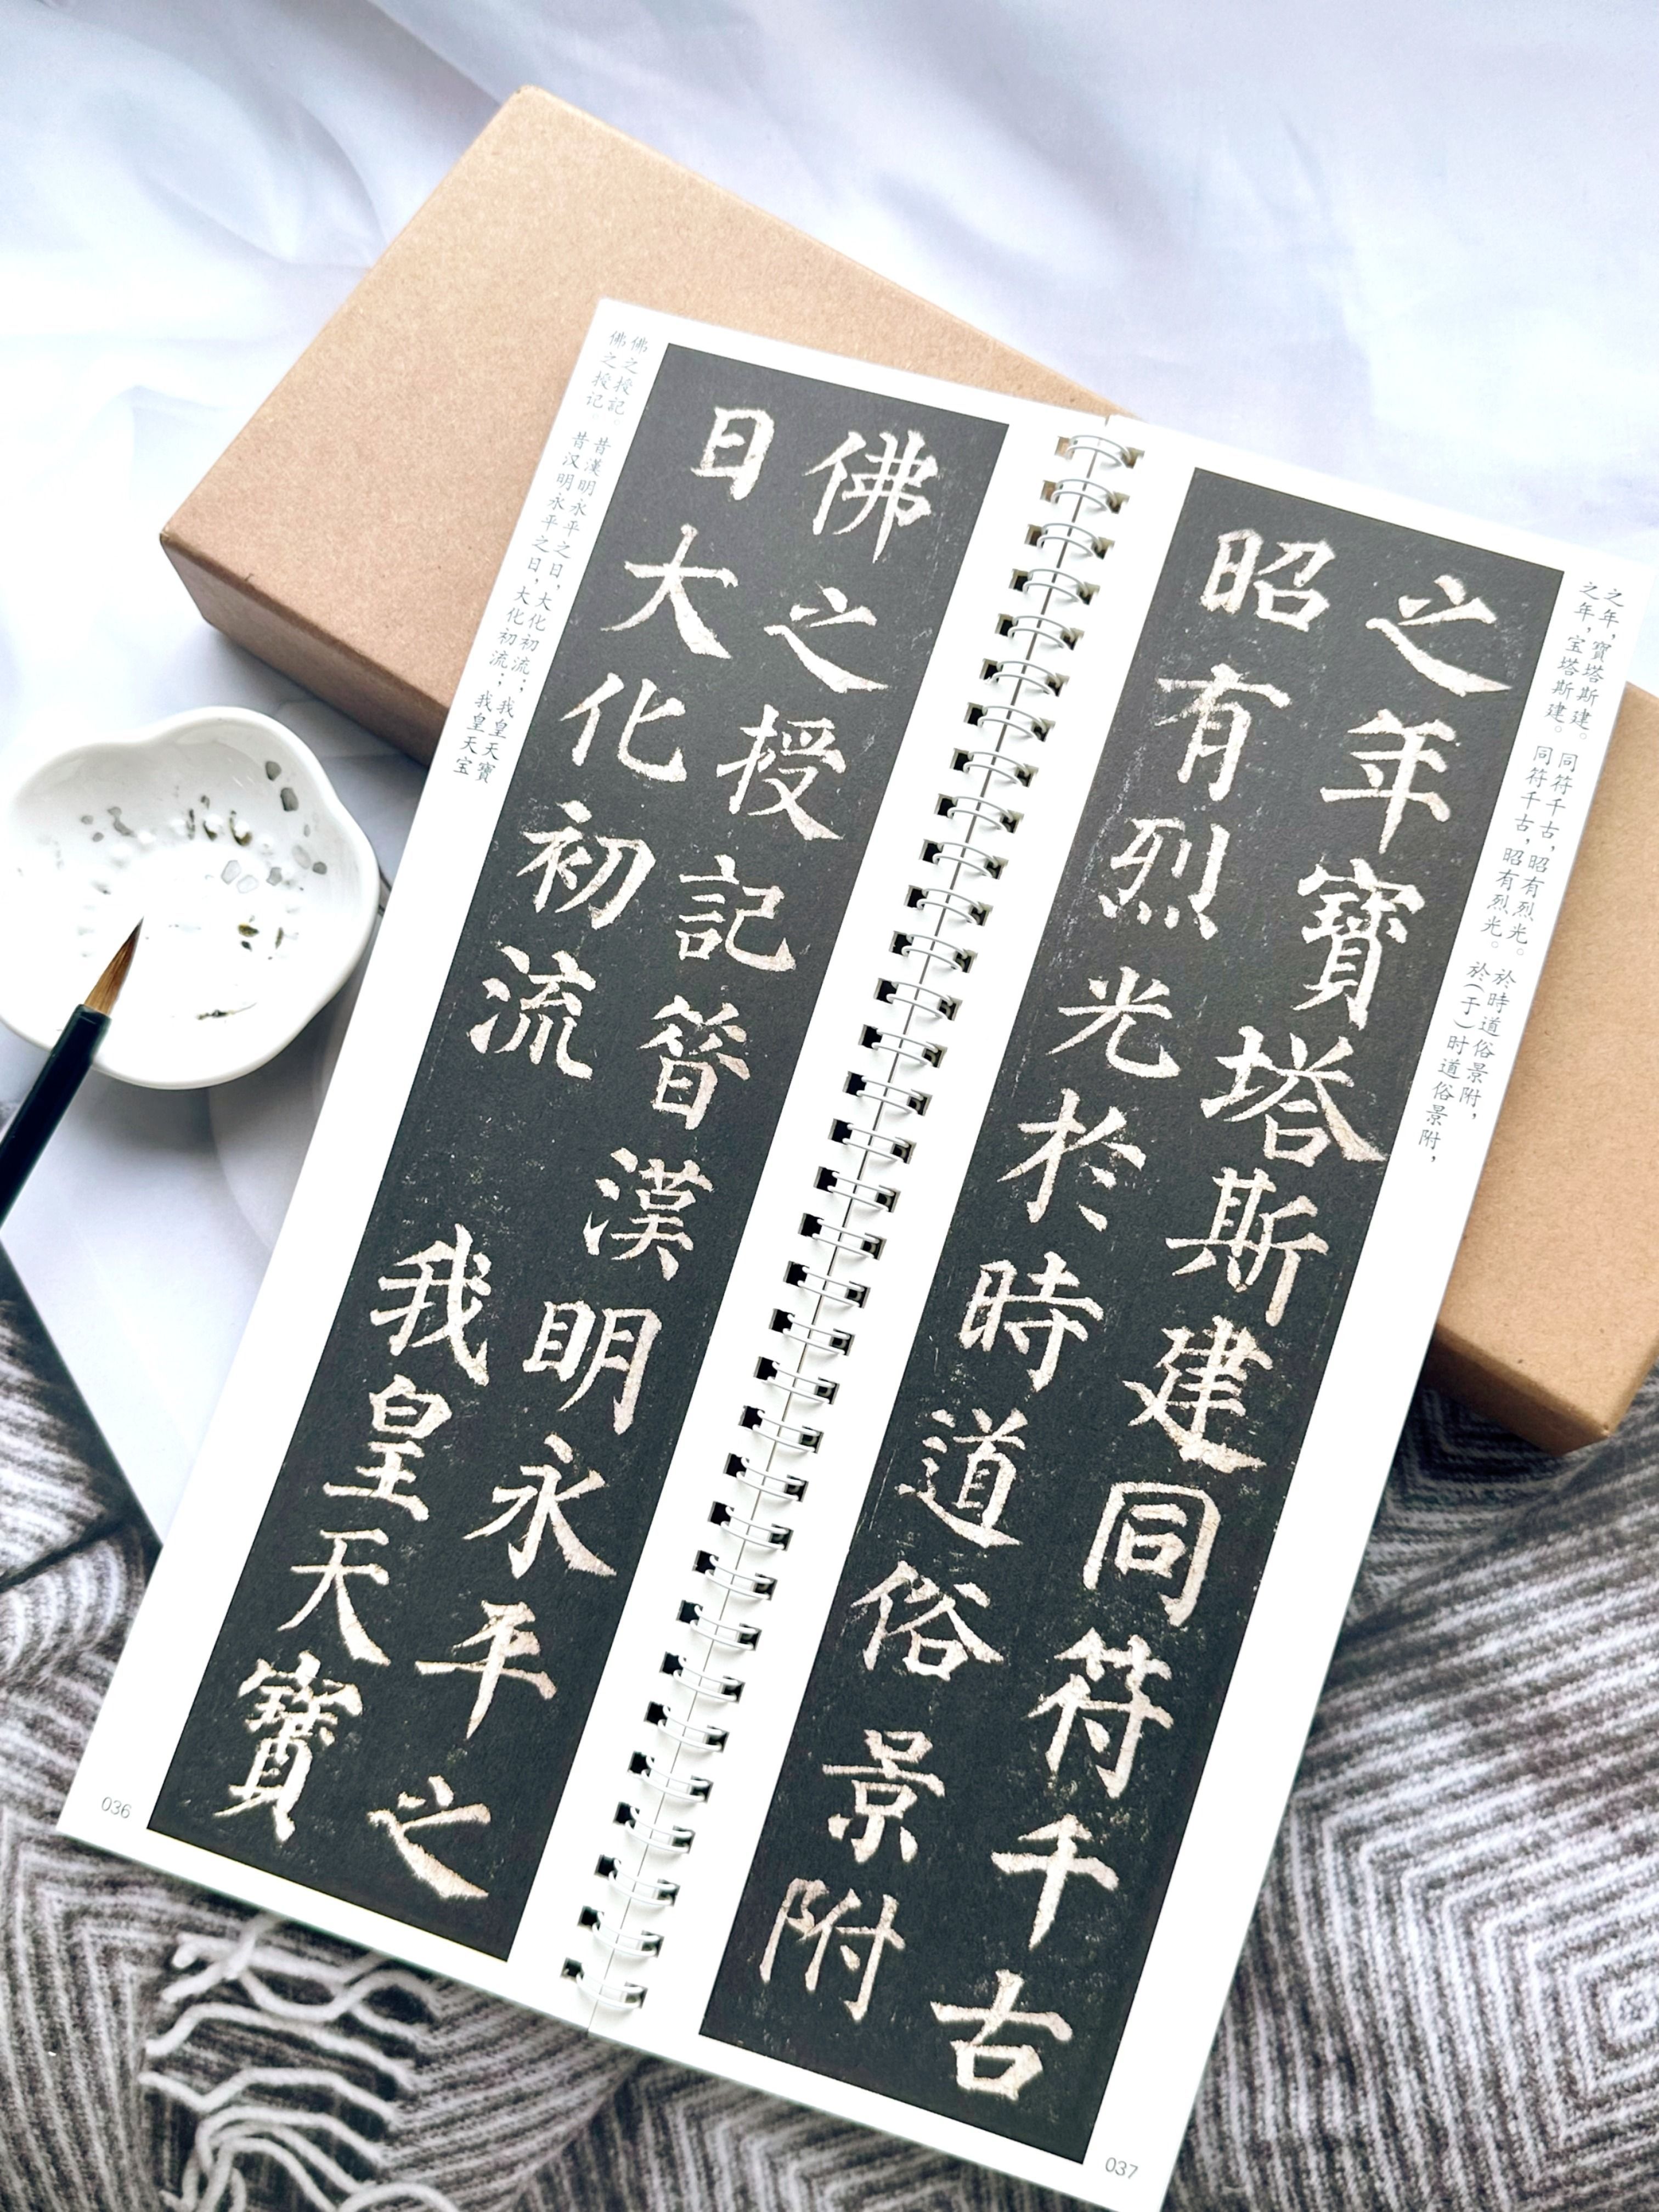 佛之授記昔漢明永平之
日大化初流 我皇天寶
佛之授記。昔漢明永平之日，大化初流；我皇天寶
佛之授记。昔汉明永平之日，大化初流；我皇天宝
036
之年，寶塔斯建。同符千古，昭有烈光。於時道俗景附，
之年，宝塔斯建。同符千古，昭有烈光。於（于）时道俗景附，
之年寶塔斯建同符千古
昭有烈光於時道俗景附
037